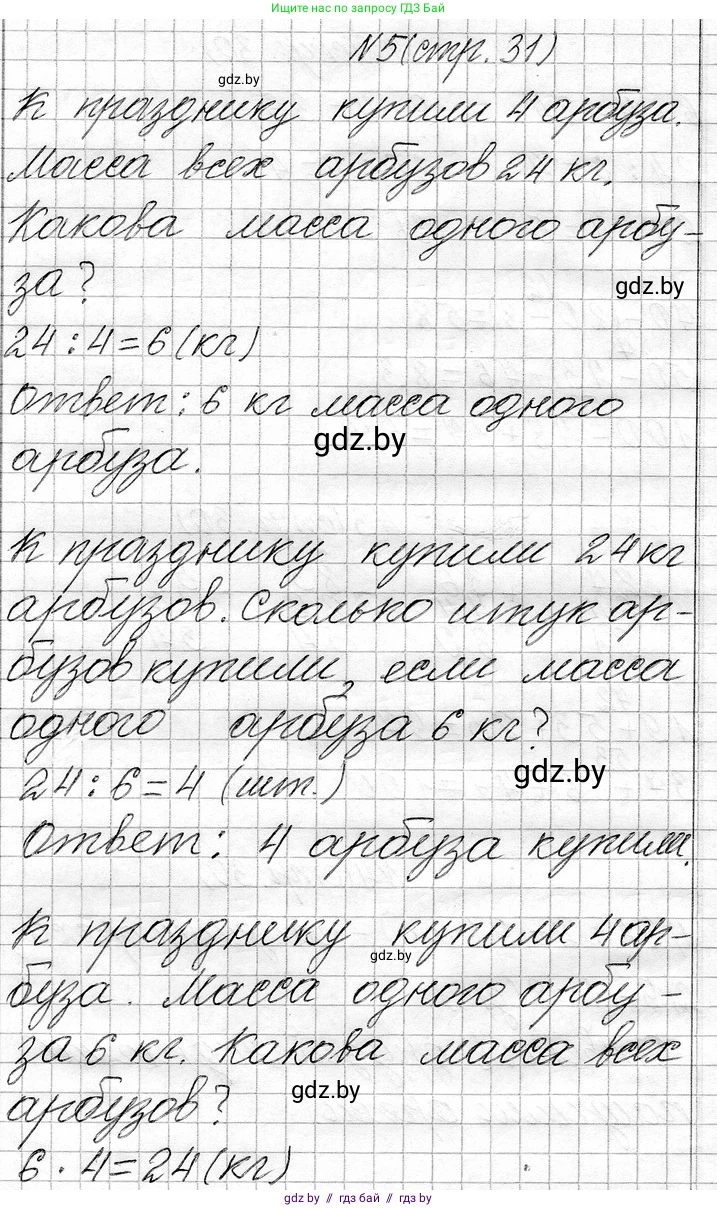 Ищите нас по запросу ГДЗ Бай
N5(стр. 31)
gdz.by
К празднику купили 4 арбуза.
Масса всех арбузов 24 кг.
Какова масса одного арбу-
за?
gdz.by
24:4=6(кг)
Ответ: 6 кг масса одного
gdz.by
арбуза.
К празднику купили 24кг
арбузов. Сколько штук ар-
бузов купили, если масса
одного арбуза 6 кг?
gdz.by
24:6=4 (шт.)
Ответ: 4 арбуза купили.
К празднику купили 4 ар-
gdz.by
буза. Масса одного арбу-
за 6 кг. Какова масса всех
арбузов?
gdz.by
6·4=24(кг)
gdz by // гдз бай // gdz by